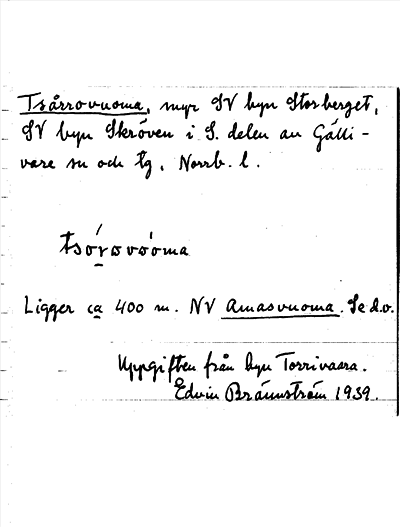 Tsårrovuoma, myr SV byn Storberget,
SV byn Skröven i S. delen av Gälli-
vare sn och tg, Norrb. l.
tsórovóoma
Ligger ca 400 m. NV Amasvuoma. Se d.o.
Uppgiften från byn Torrivaara.
Edvin Brännström 1939.